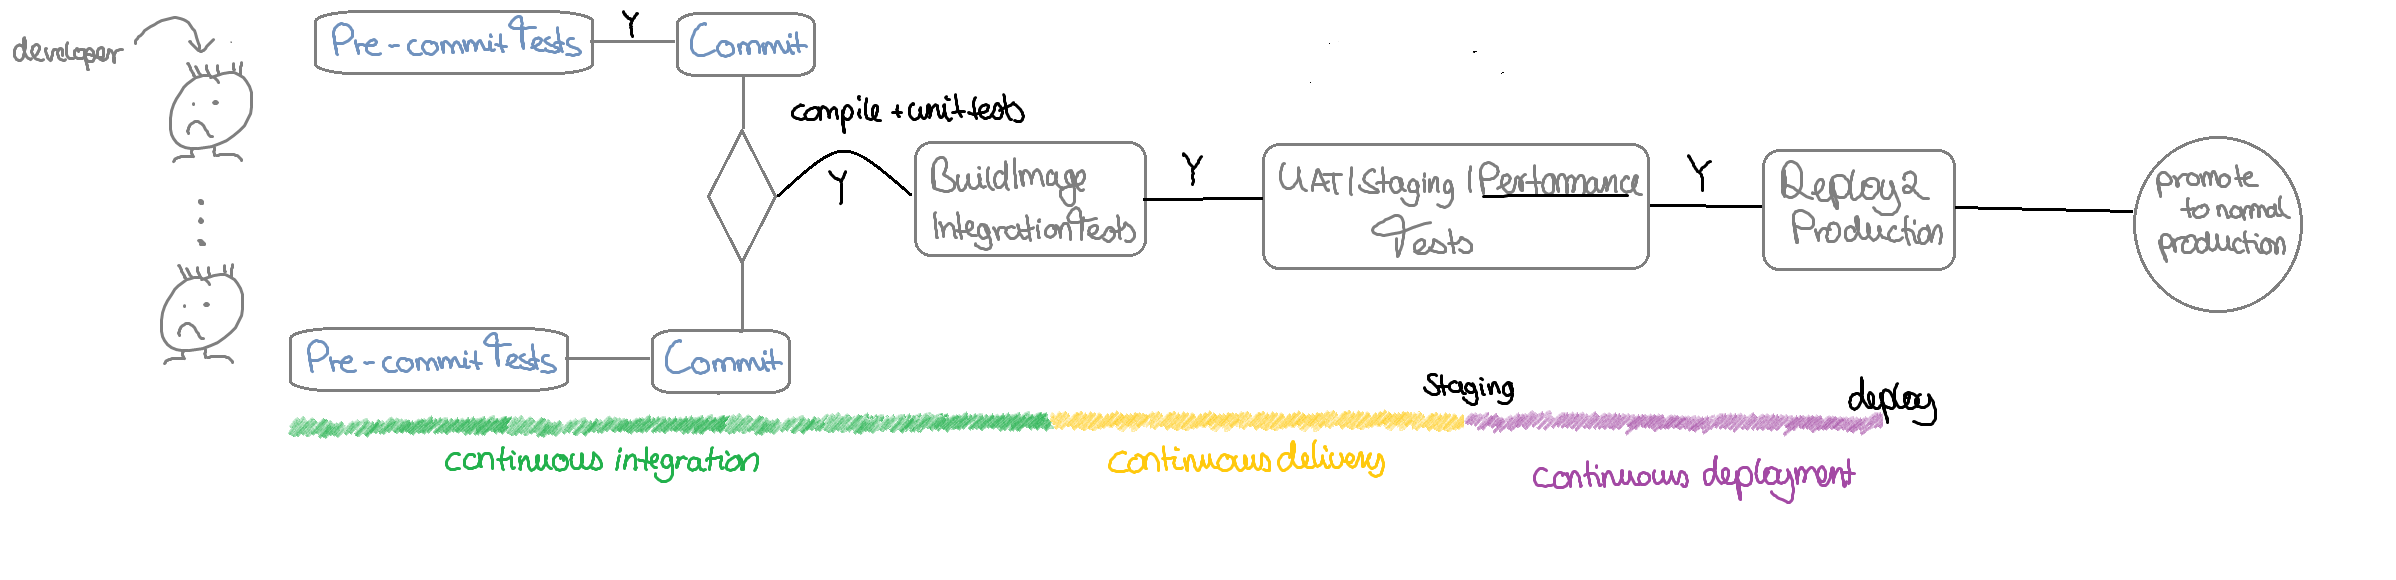 developer
Pre-commit Tests
Y
Commit
compile + unit tests
Y
Build Image
Integration Tests
Y
UAT | Staging | Performance
Tests
Y
Deploy 2
Production
promote
to normal
production
Pre-commit Tests
Commit
Staging
deploy
continuous integration
continuous delivery
continuous deployment